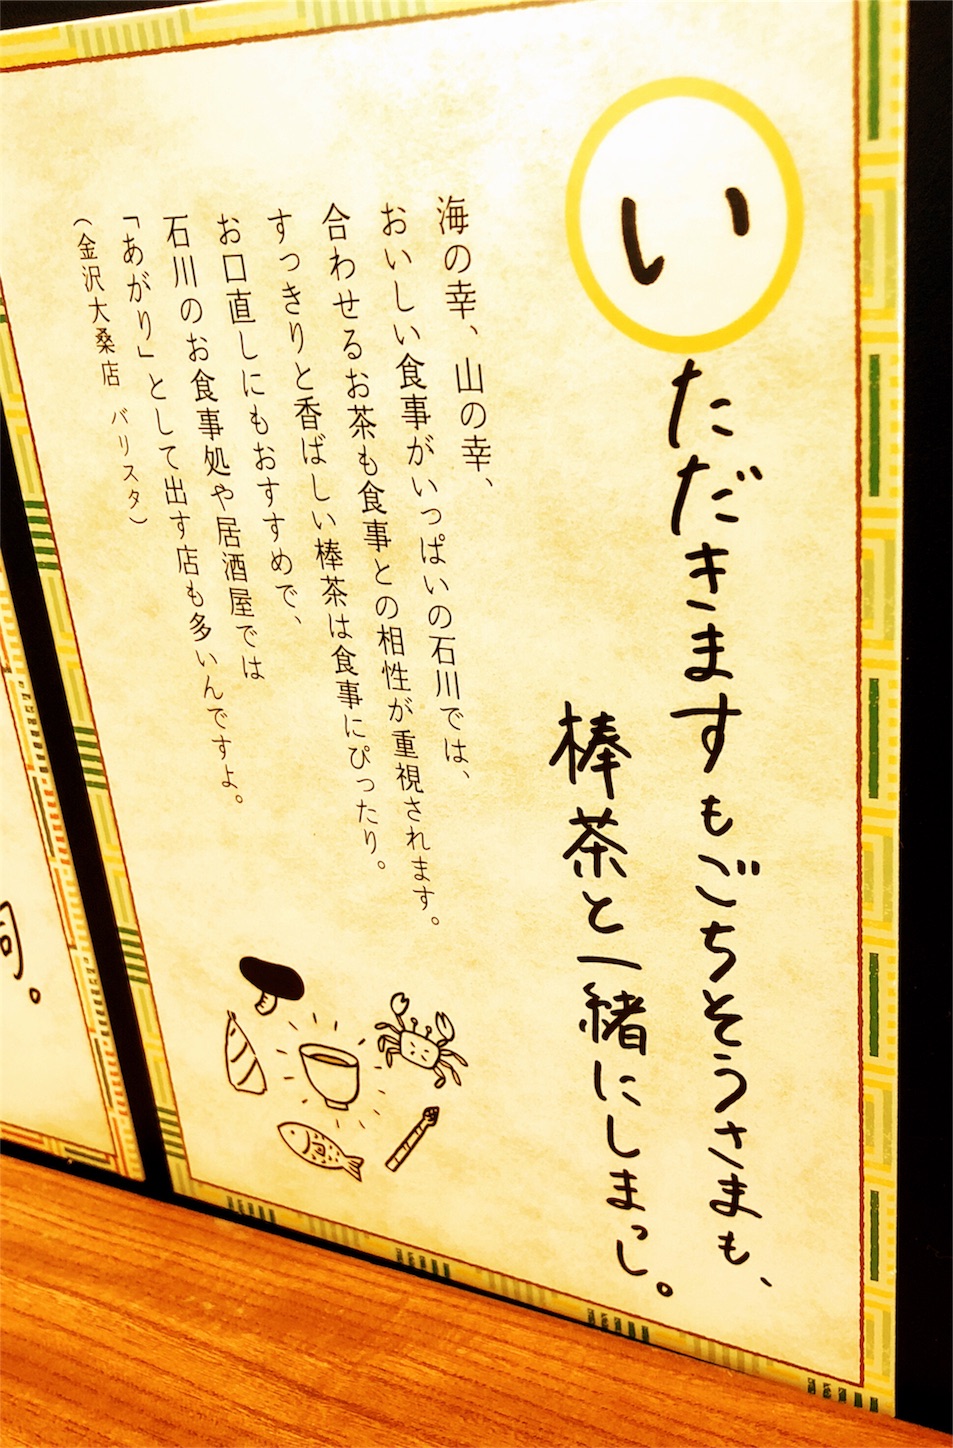 いただきますもごちそうさまも、
棒茶と一緒にしまっし。
海の幸、山の幸、
おいしい食事がいっぱいの石川では、
合わせるお茶も食事との相性が重視されます。
すっきりと香ばしい棒茶は食事にぴったり。
お口直しにもおすすめで、
石川のお食事処や居酒屋では
「あがり」として出す店も多いんですよ。
（金沢大桑店 バリスタ）